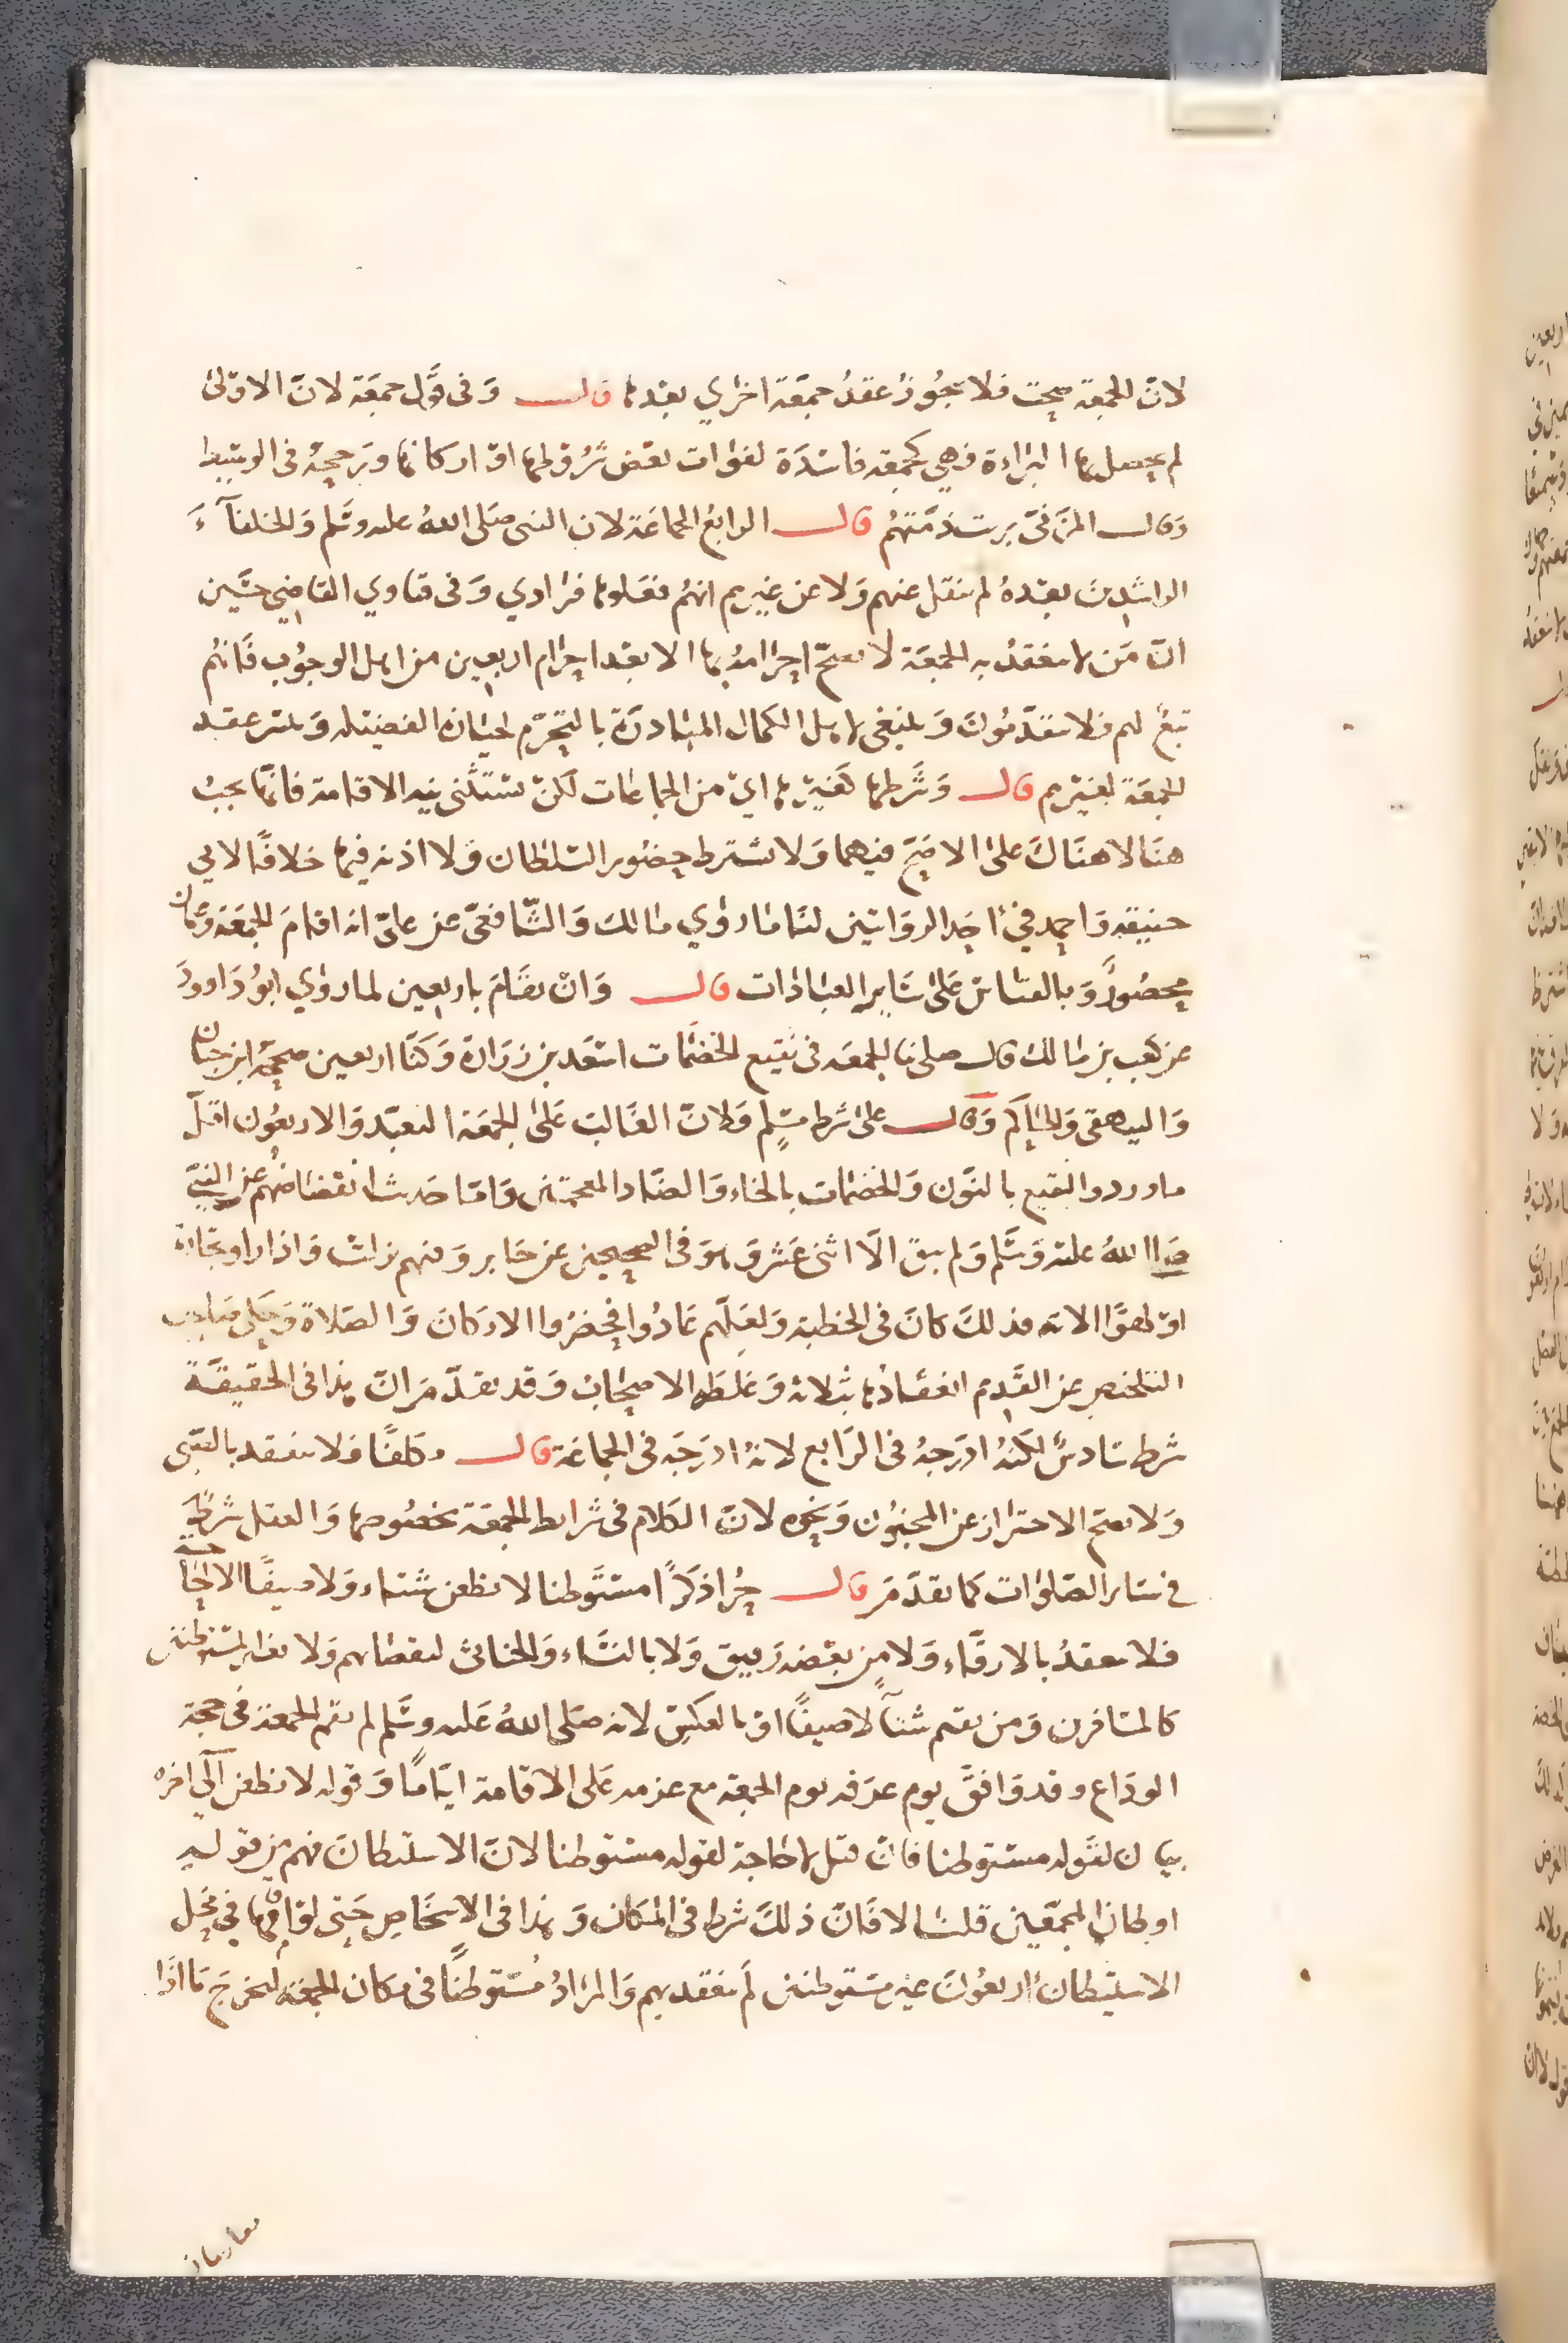 لانّ الجمعة صحت فلا يجُوزُ عقدُ جمعَة اخرٰي بعدها قال وَفى قوَّل جمعَة لانّ الاوّلىٰ
لم يحصل بها البراءة فهي كجمعة فاسدَة لفوات بعض شرُوطها اوْ اركانها وَرجحهُ فى الوسيط
وَقال المزَنىّ برت ذمّتهُم قال الرابعُ الجماعَة لان النبى صَلى اللهُ عليه وسَّلم وَالخلفآءَ
الراشدين بعدهُ لم ينقل عنهم وَلا عن غيرهم انهُم فعَلوها فرٰادي وَفى فتاوي القاضِي حسَين
انّ مَن لا تنعقدُ به الجمعَة لا يصحّ احرامهُ بها الا بعد احرام اربعين من اهل الوجوُب فَانهُم
تبعٌ لهم فلا يتقدّمُونَ وَينبغي لاهل الكمال المبادرَة بالتحرّم لحيازة الفضيله وَليتر عقد
الجمعَة لغيرهم قال وَشَرطها كغيرها ايْ من الجماعات لكنْ يستثنى فيه الاقامة فانهّا يجبُ
هنَا لا هنَاكَ علىٰ الاصَحّ فيهما وَلا يشترط حضُور السّلطان وَلا اذنه فيها خلافًا لابي
حنيفه وَاحمد في احَد الروَايتين لنَا ما روٰي مالك وَالشّافعىّ عن علىّ انه اقامَ الجمعَة وَعثمان
محصُورٌ وَبالقيَاس عَلىٰ سَاير العبادٰات قال وَانْ يقَامَ باربعين لما روٰي ابوُ دَاوودَ
عن كعب بن مالك قال صلى بنا الجمعَه فى نقيع الخضمَات اسعَد بن زرَارة وَكنّا اربعين صححهُ ابن حبان
وَالبيهقى وَالحاكَم وَقال على شرط مسْلم وَلانّ الغَالبَ عَلىٰ الجمعَة التعبّد وَالاربعُون اقلّ
ما ورد والنقيع بالنّون وَالخضمَات بالخاء وَالضاد المعجمتين وَامّا حَديث انفضاضهُم عن النبىّ
صَلى اللهُ عليه وَسَّلم وَلم يبق الّا اثنىْ عشر وَهوَ فى الصحيحين عن جَابر وَفيهم نزلت وَاذا راوْ تجَارة
اوْ لهوًا الاية فذلكَ كانَ فى الخطبة وَلعَلّهم عَادُوا فحضرُوا الاركانَ وَالصَلاة وَحكى صَاحب
التلخيص عن القَديم انعقادُها بثلاثة وَغلطه الاصحَاب وَقد تقدّمَ انّ هذا فى الحقيقَة
شرط سَادسٌ لكنهُ ادرَجهُ فى الرَابع لانهُ ادرَجَه فى الجماعَة قال مكلفًا فلا تنعقد بالصَّبى
وَلا يصح الاحتراز عن المجنوُن وَنحوه لانّ الكلام فى شرَايط الجمعَة بخصُوصها وَالعقل شرطٌ
في سَاير الصّلوات كمَا تقدّمَ قال حُرا ذكَرًا مستَوطنا لا يظعن شتاء وَلا صيفًا الا لحَاجة
فلا تنعقدُ بالارقّاء وَلا من بعْضه رقيق وَلا بالنسَاء وَالخناثى لنقصَانهم وَلا بغير المستوطنين
كالمسَافرين وَمن يقيم شتآءً لا صيفًا اوْ بالعكس لانه صَلى اللهُ عَليه وسَّلم لم يقم الجمعَة فى حجة
الودَاع وقد وَافقَ يوم عرَفه يوم الجمعَة مع عزمه عَلى الاقامة ايّامًا وَقوله لا يظعن الى اخرهِ
بيان لقَوله مستوطنا فانْ قيل لا حاجة لقوله مستوطنا لانّ الاستيطانَ فهم من قوله
اوطان المجمّعين قلنَا لا فَانّ ذلكَ شرط فى المكَان وَهذا فى الاشخَاص حَتى لوْ اقَامها فى محل
الاستيطان اربعُونَ غير مستوطنين لَم تنعقد بهم وَالمرَادُ مُستوطنًا فى مكان الجمعَة ليخرجَ مَا اذَا